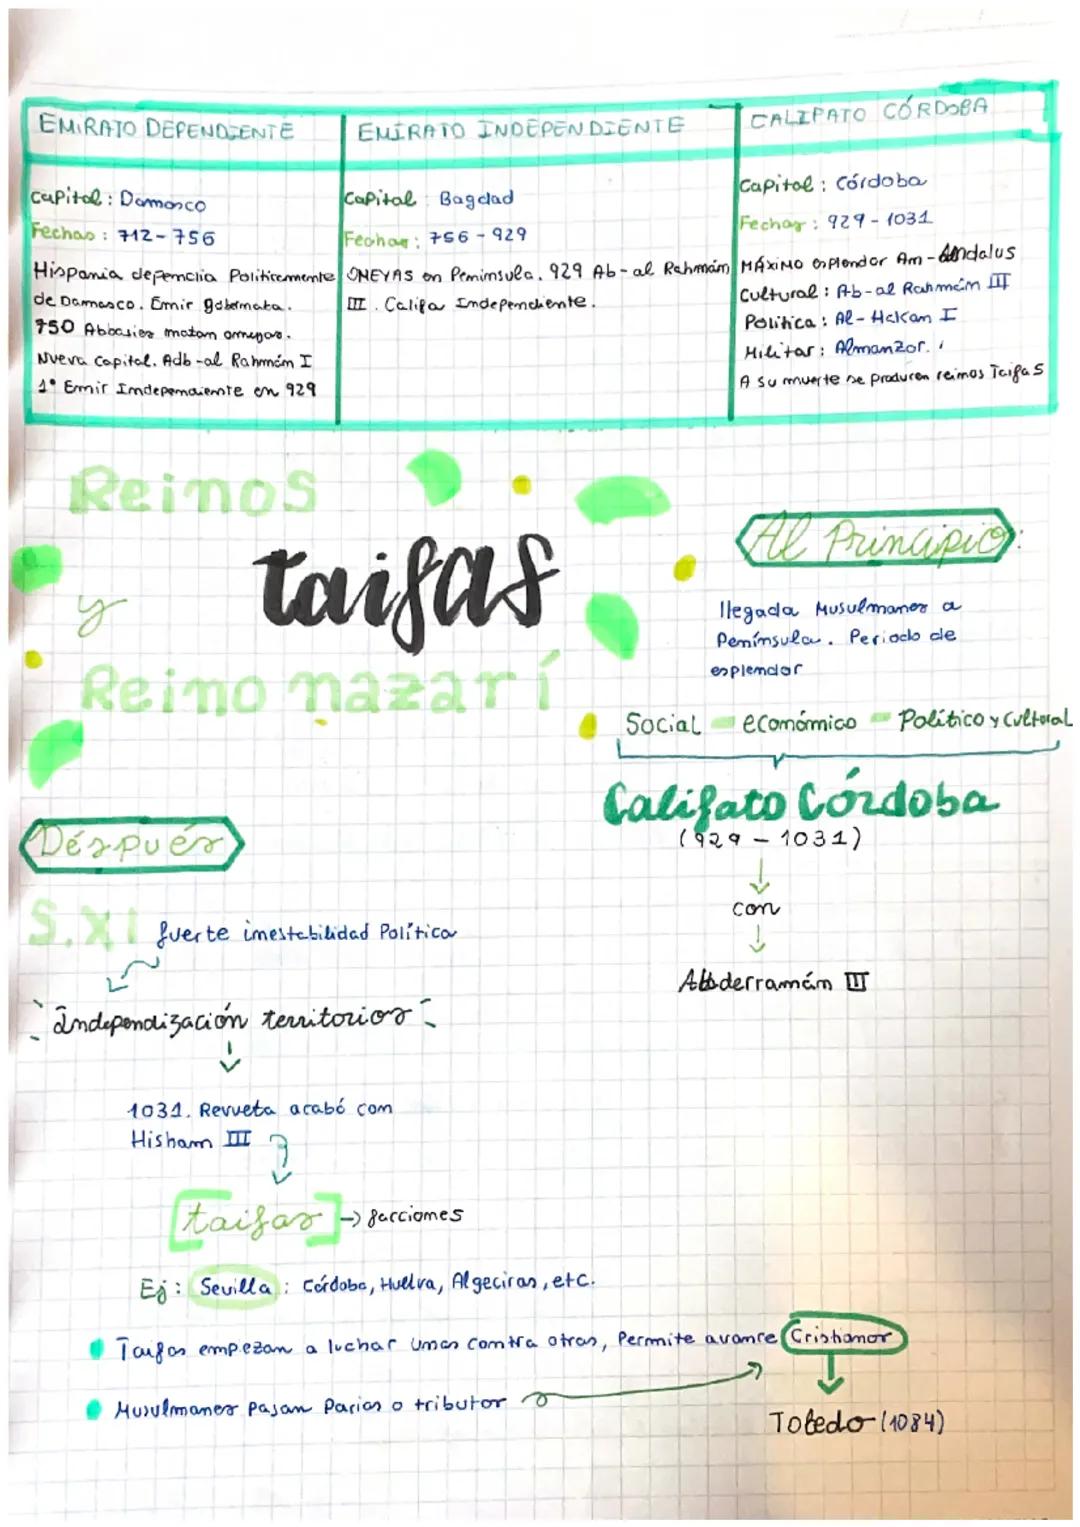 EMIRATO DEPENDIENTE
Capital: Damasco
Fechas: 712-756
Hispania dependia Politicamente
de Damasco. Emir gobernaba.
750 Abbasies matan omeyas.
Nueva Capital. Adb-al Rahmán I
1º Emir Independiente en 929
EMIRATO INDEPENDIENTE
Capital: Bagdad
Fechas: 756-929
OMEYAS en Peninsula. 929 Ab-al Rahmán
III. Califa Independiente.
CALIFATO CÓRDOBA
Capital: Córdoba
Fechas: 929-1031
MÁXIMO esplendor Am-Andalus
Cultural: Ab-al Rahmán III
Politica: Al-Hakam I
Militar: Almanzor.
A su muerte se producen reinos Taifas
Reinos
taifas
y
Reino nazarí
Al Principio:
llegada Musulmanes a
Península. Periodo de
esplendor
Social - económico - Político y Cultural
Califato Córdoba
(929-1031)
con
Abderramán III
Déspués
S.XI fuerte inestabilidad Política
independización territorios
1031. Revueta acabó con
Hisham III
[taifas] -> facciones
Ej: Sevilla: Córdoba, Huelva, Algeciras, etc.
Taifas empezan a luchar unas contra otras, Permite avance Cristianos
Musulmanes pagan Parias o tributos
Toledo (1084)